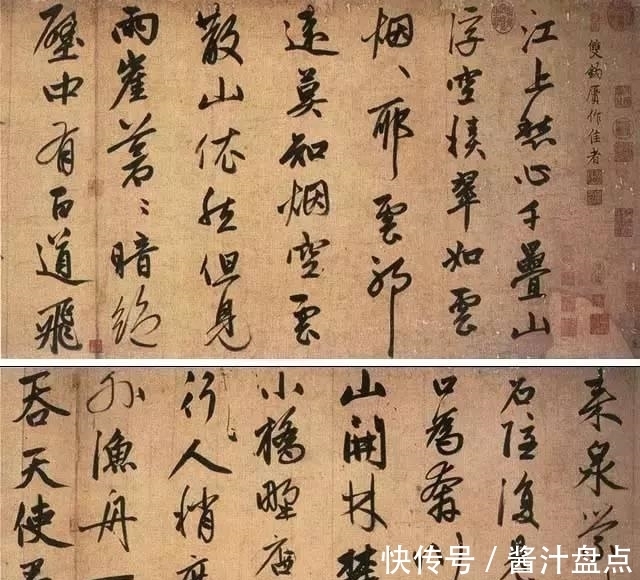 雙鈎贗作佳者
江上愁心千疊山
浮空積翠如雲
烟、耶雲耶
遠莫知烟空雲
散山依然但見
兩崖蒼、暗絕
壁中有百道飛
来泉縈
石隱復
口為奔川
山開林
小橋野店
行人稍度
外漁舟
吞天使君
快传号/酱汁盘点